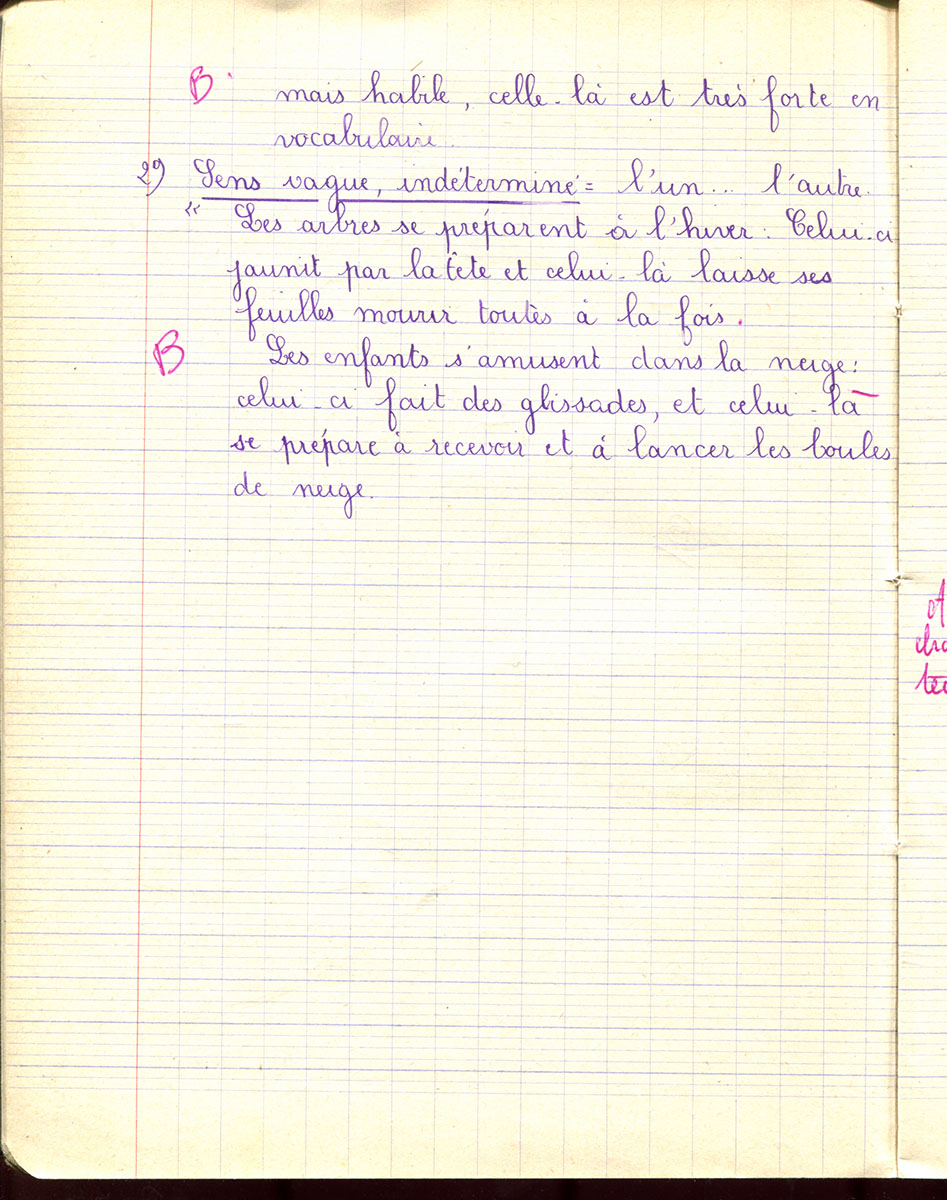 B mais habile, celle-là est très forte en
vocabulaire.
2°) Sens vague, indéterminé = l'un... l'autre.
" Les arbres se préparent à l'hiver : Celui-ci
jaunit par la tête et celui-là laisse ses
feuilles mourir toutes à la fois.
B Les enfants s'amusent dans la neige :
celui-ci fait des glissades, et celui-là
se prépare à recevoir et à lancer les boules
de neige.